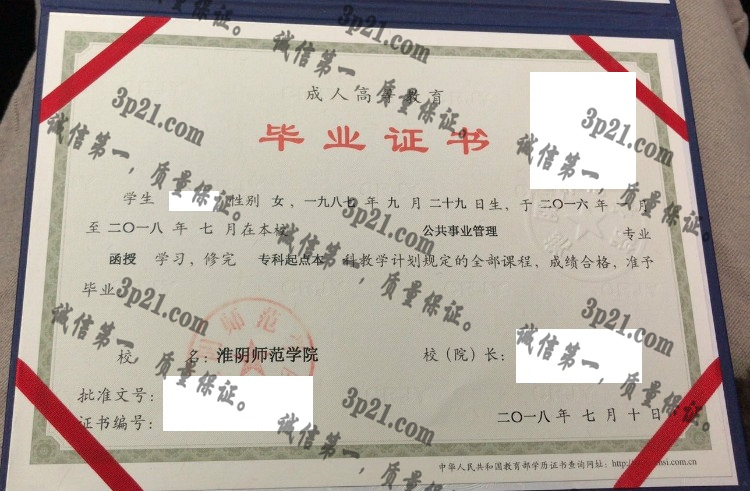 成人高等教育
毕业证书
学生 性别 女，一九八七年 九月 二十九日生，于二〇一六年 月
至二〇一八年 七月在本校 公共事业管理 专业
函授 学习，修完 专科起点本 科教学计划规定的全部课程，成绩合格，准予
毕业。
校 名：淮阴师范学院 校（院）长：
批准文号：
证书编号：
二〇一八年 七月 十日
中华人民共和国教育部学历证书查询网址：http://
师范
3p21.com
诚信第一，质量保证。
3p21.com
诚信第一，质量保证。
3p21.com
诚信第一，质量保证。
3p21.com
诚信第一，质量保证。
3p21.com
诚信第一，质量保证。
3p21.com
诚信第一，质量保证。
3p21.com
诚信第一，质量保证。
3p21.com
诚信第一，质量保证。
3p21.com
诚信第一，质量